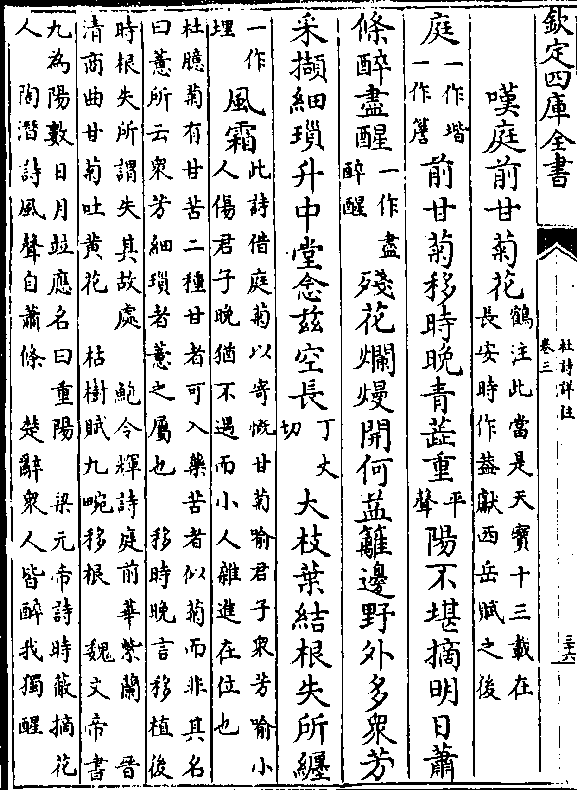 欽定四庫全書
杜詩詳註
卷三
三十六
嘆庭前甘菊花
鶴注此當是天寶十三載在
長安時作葢獻西岳賦之後
庭
一作堦
一作簷
前甘菊移時晚青蘂重
平
聲
陽不堪摘明日蕭
條醉盡醒
一作盡
醉醒
殘花爛熳開何益籬邊野外多衆芳
采擷細瑣升中堂念兹空長
丁丈
切
大枝葉結根失所纒
一作
埋
風霜
此詩借庭菊以寄慨甘菊喻君子衆芳喻小
人傷君子晚猶不遇而小人雜進在位也
杜臆菊有甘苦二種甘者可入藥苦者似菊而非其名
曰薏所云衆芳細瑣者薏之屬也　移時晚言移植後
時根失所謂失其故處　鮑令輝詩庭前華紫蘭　晉
清商曲甘菊吐黄花　枯樹賦九畹移根　魏文帝書
九為陽數日月竝應名曰重陽　梁元帝詩時菽摘花
人　陶潛詩風聲自蕭條　楚辭衆人皆醉我獨醒